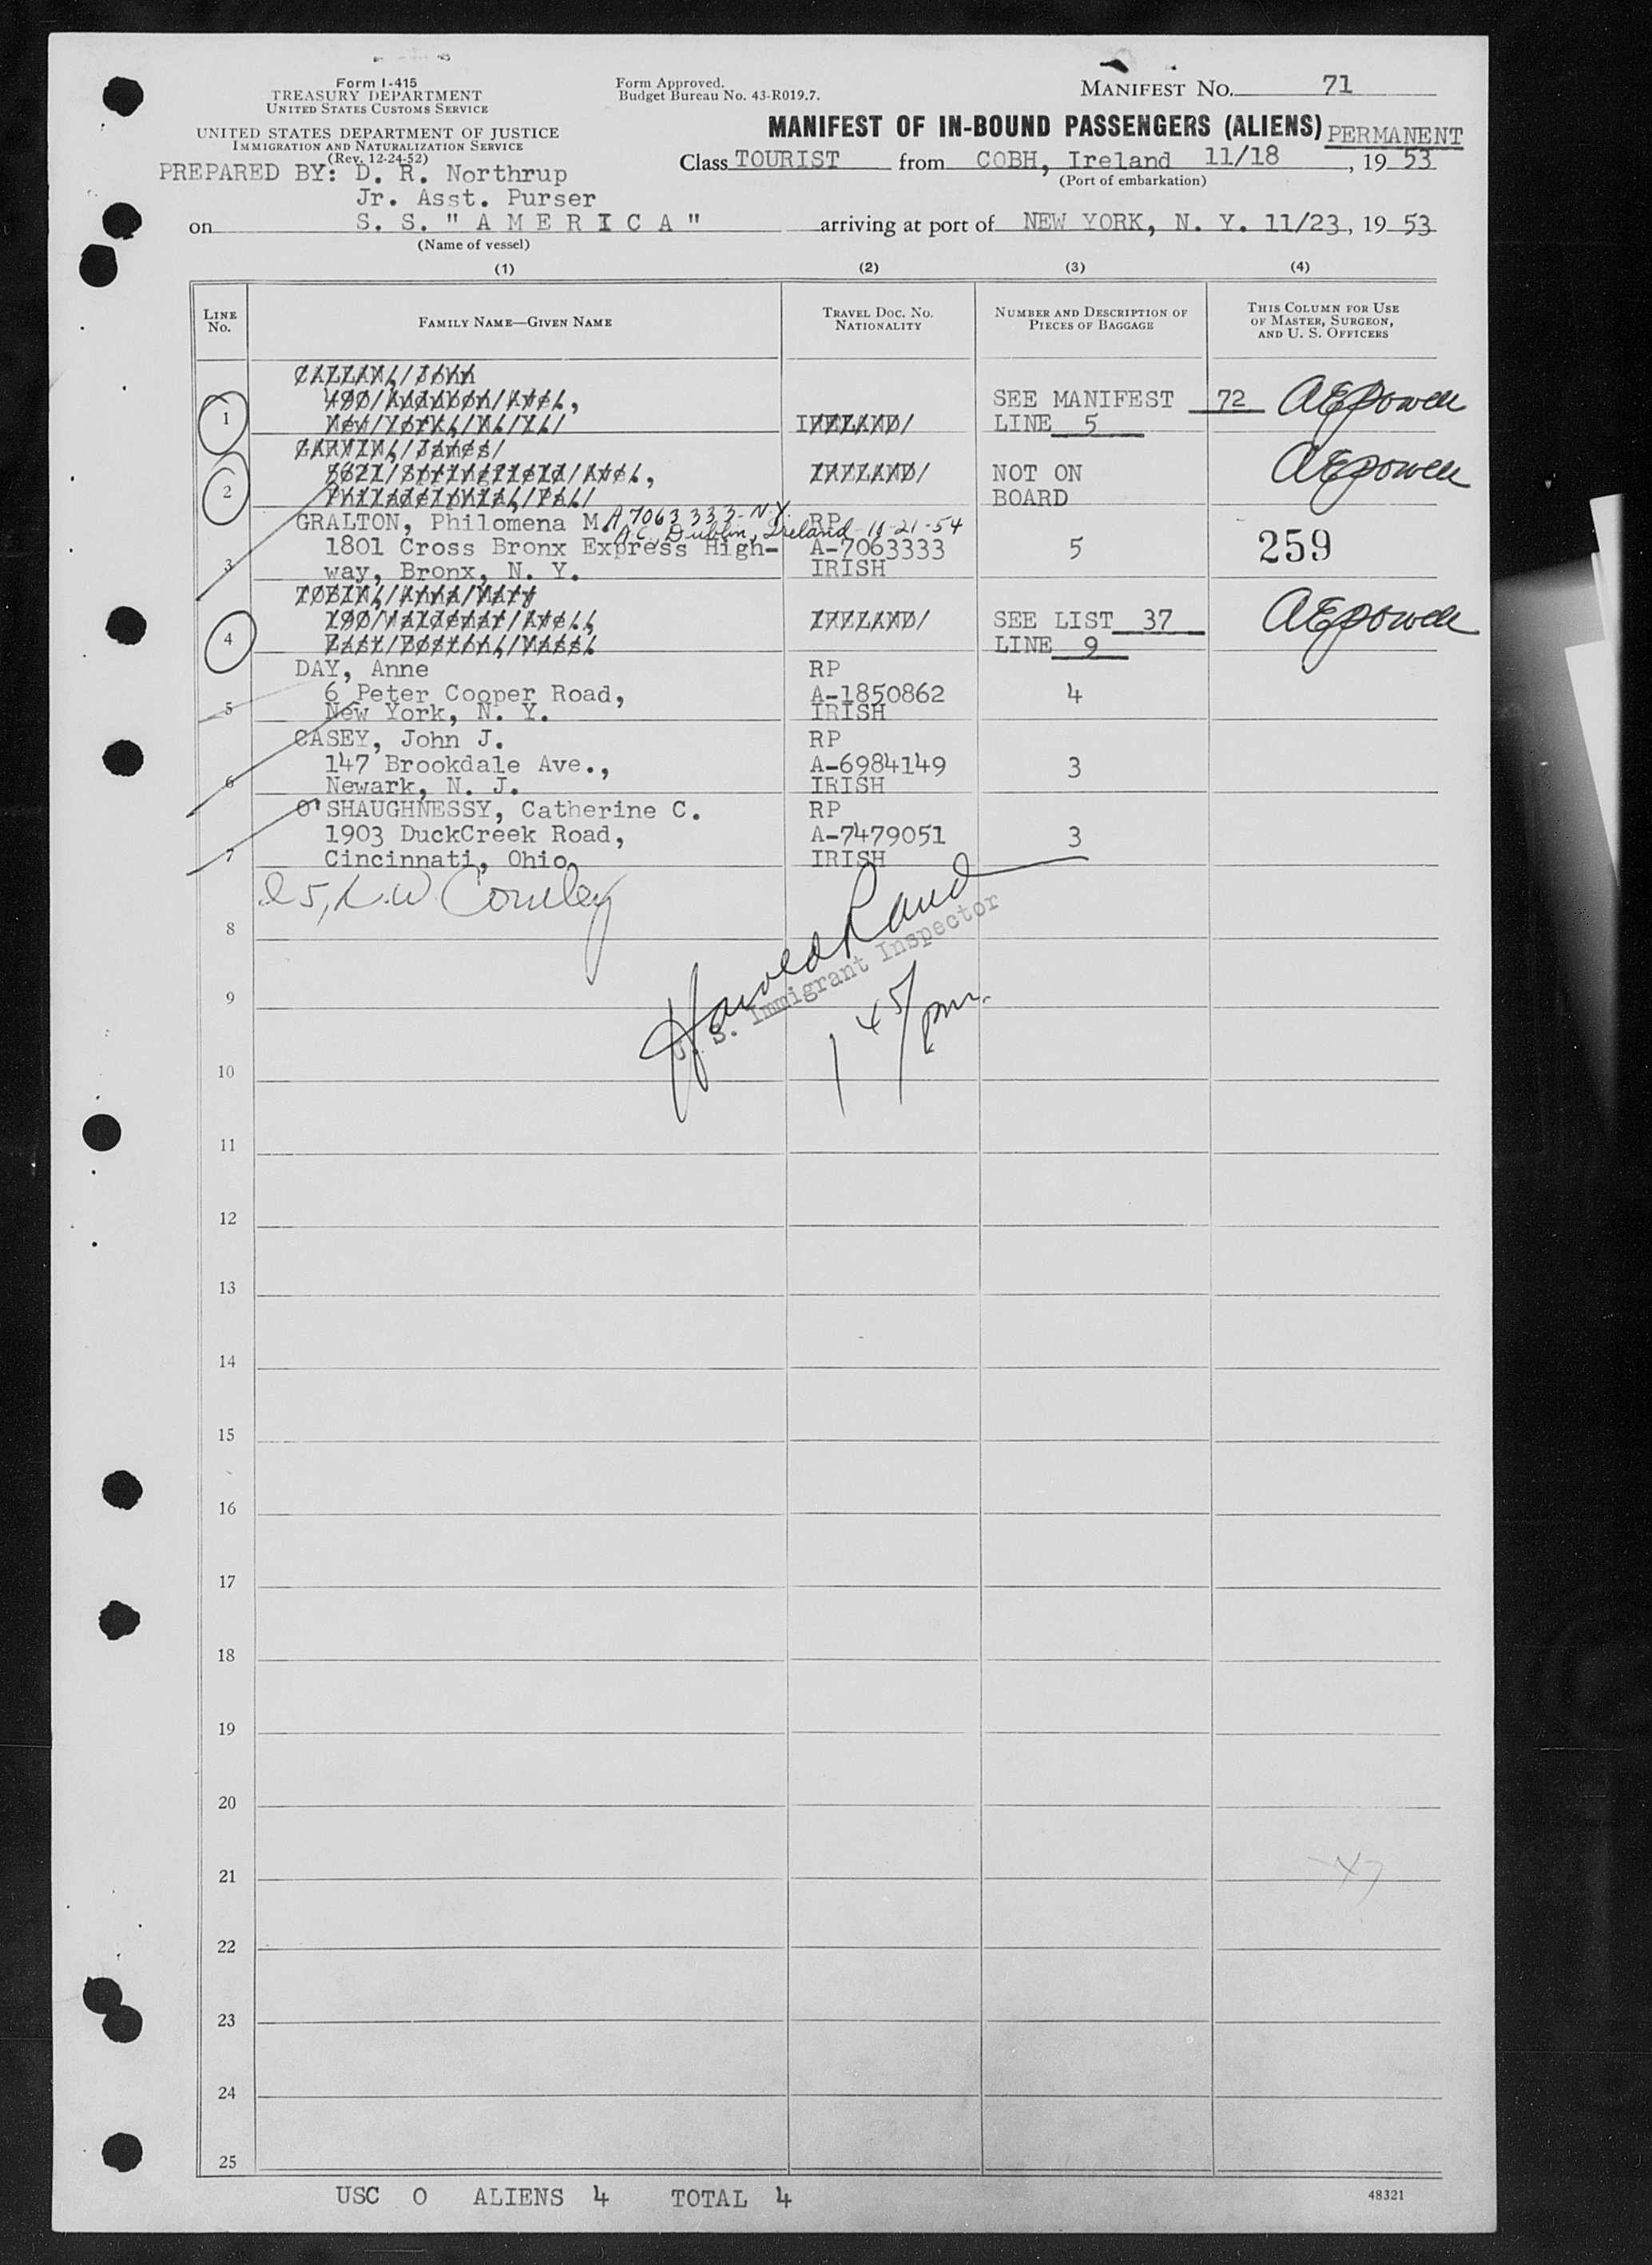 Form I-415
TREASURY DEPARTMENT
UNITED STATES CUSTOMS SERVICE
UNITED STATES DEPARTMENT OF JUSTICE
IMMIGRATION AND NATURALIZATION SERVICE
(Rev. 12-24-52)
Form Approved.
Budget Bureau No. 43-R019.7.
MANIFEST NO. 71
MANIFEST OF IN-BOUND PASSENGERS (ALIENS) PERMANENT
Class TOURIST from COBH, Ireland 11/18, 19 53
(Port of embarkation)
PREPARED BY: D. R. Northrup
Jr. Asst. Purser
on S. S. "A M E R I C A" arriving at port of NEW YORK, N. Y. 11/23, 19 53
(Name of vessel)
(1) (2) (3) (4)
LINE No. FAMILY NAME—GIVEN NAME TRAVEL DOC. NO. NATIONALITY NUMBER AND DESCRIPTION OF PIECES OF BAGGAGE THIS COLUMN FOR USE OF MASTER, SURGEON, AND U. S. OFFICERS
CALLAN, John
490 Audubon Ave., SEE MANIFEST 72 AEPowell
1 New York, N. Y. IRELAND LINE 5
GARVIN, James
Springfield Ave., IRELAND NOT ON AEPowell
2 Philadelphia, Pa. BOARD
GRALTON, Philomena M. A 7063333-N.Y. RP
Dublin, Ireland 10-21-54
1801 Cross Bronx Express High- A-7063333 5 259
3 way, Bronx, N. Y. IRISH
TOBIN, Anna Mary
190 Waldemar Ave., IRELAND SEE LIST 37 AEPowell
4 East Boston, Mass. LINE 9
DAY, Anne RP
6 Peter Cooper Road, A-1850862 4
5 New York, N. Y. IRISH
CASEY, John J. RP
147 Brookdale Ave., A-6984149 3
6 Newark, N. J. IRISH
O'SHAUGHNESSY, Catherine C. RP
1903 DuckCreek Road, A-7479051 3
7 Cincinnati, Ohio IRISH
Harold Land
U. S. Immigrant Inspector
1 45/pm.
8
9
10
11
12
13
14
15
16
17
18
19
20
21
22
23
24
25
USC 0 ALIENS 4 TOTAL 4
48321